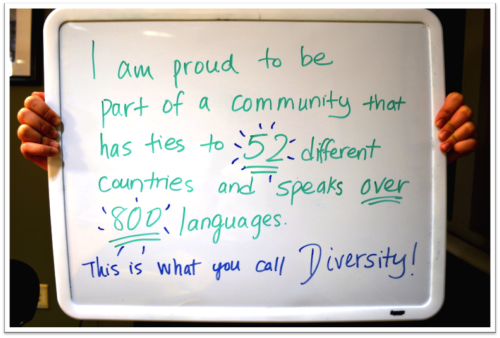 I am proud to be
part of a community that
has ties to 52 different
countries and speaks over
800 languages.
This is what you call Diversity!